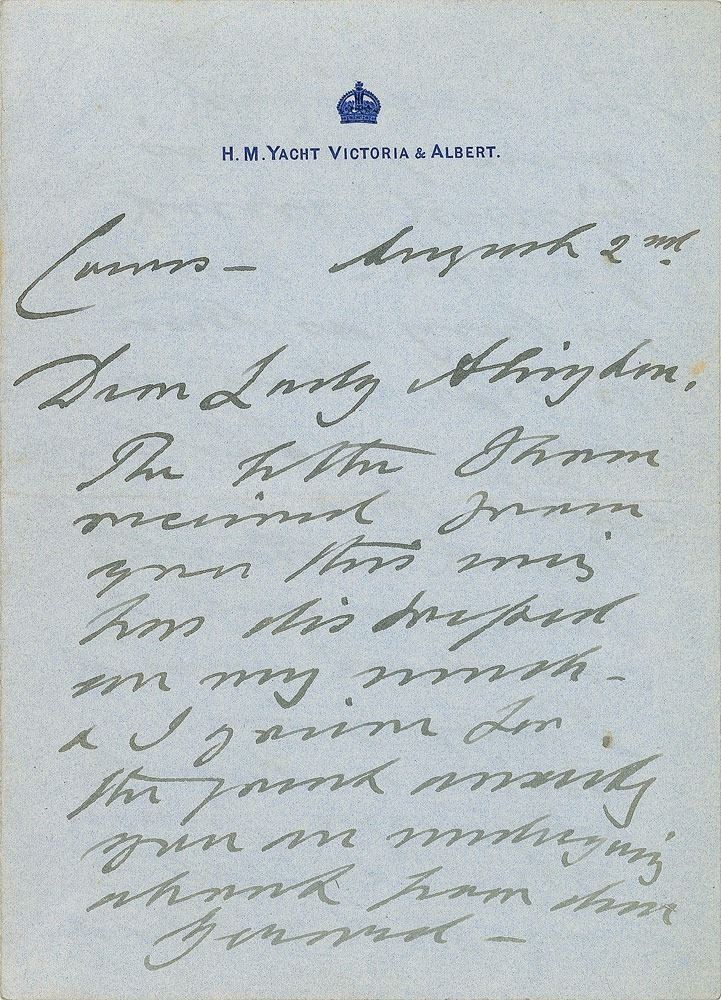 H. M. YACHT VICTORIA & ALBERT.
Cowes – August 2nd
Dear Lady Abingdon,
The letter I have
received from
you this
has distressed
me very much –
& I grieve for
the great anxiety
you are undergoing
about poor dear
–